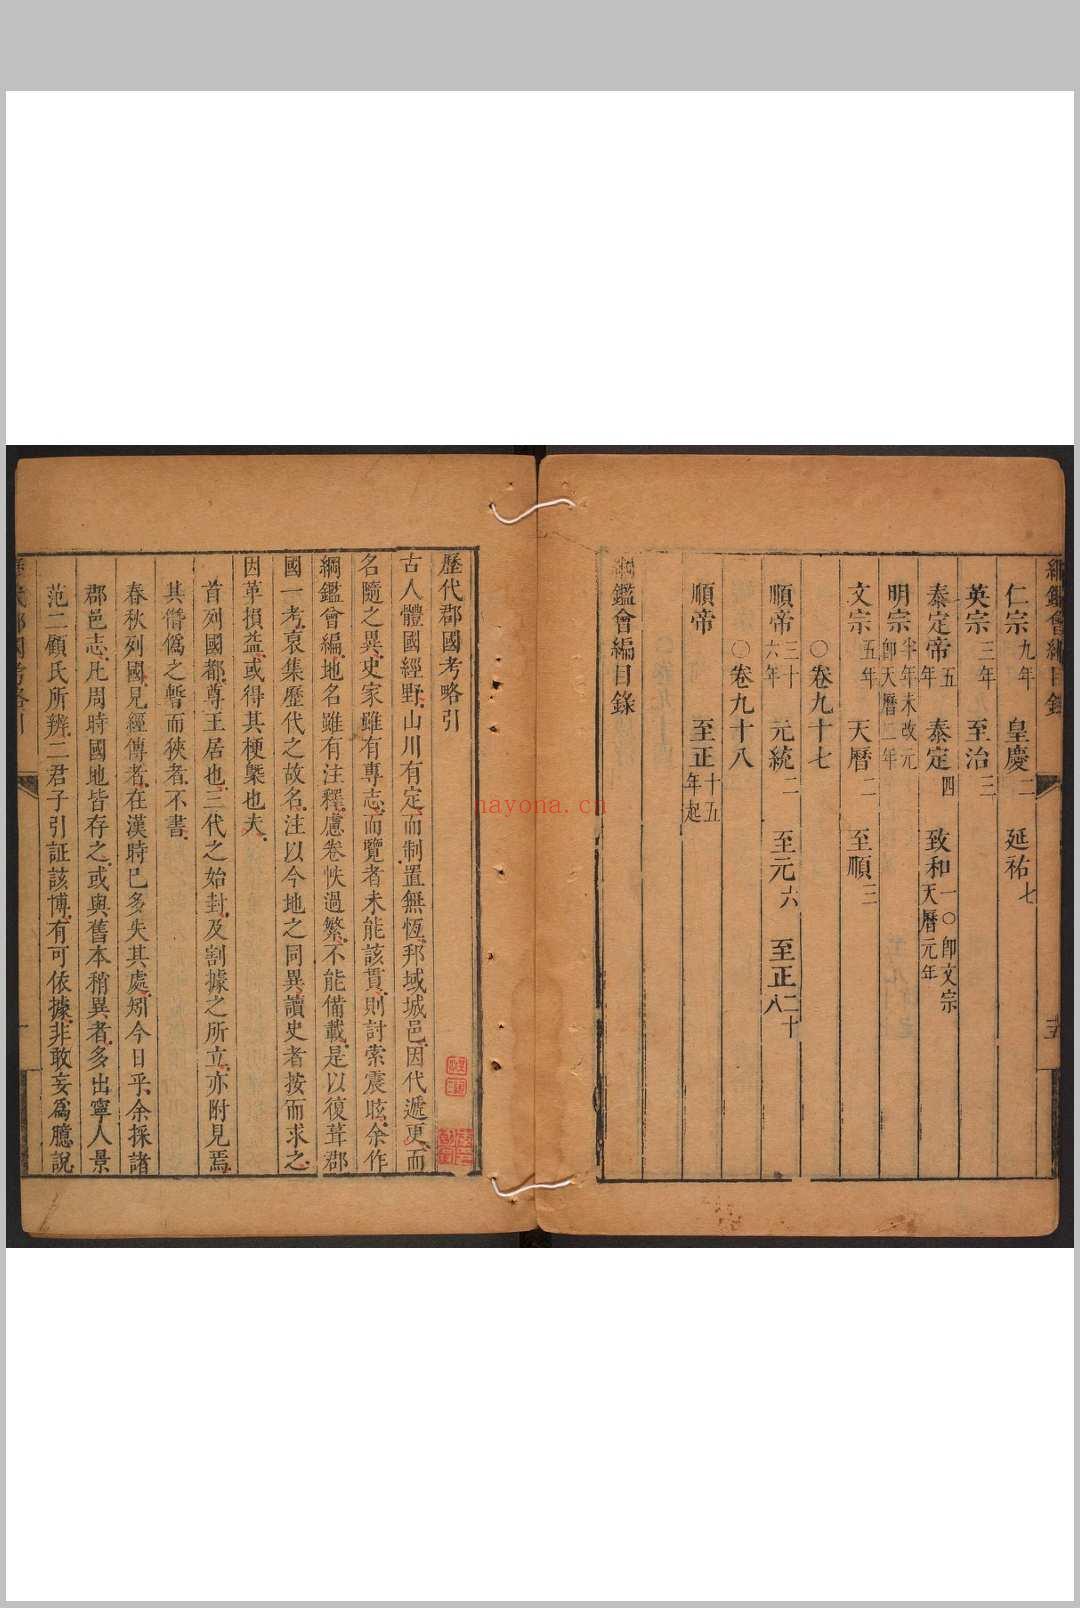 綱鑑會編目錄
仁宗九年 皇慶二 延祐七
英宗三年 至治三
泰定帝五年 泰定四 致和一〇卽文宗天曆元年
明宗半年未改元卽天曆二年
文宗五年 天曆二 至順三
〇卷九十七
順帝三十六年 元統二 至元六 至正二十八
〇卷九十八
順帝 至正十五年起
綱鑑會編目錄
歷代郡國考略引
古人體國經野山川有定而制置無恆邦域城邑因代遞更而
名隨之異史家雖有專志而覽者未能該貫則討索震眩余作
綱鑑會編地名雖有注釋慮卷帙過繁不能備載是以復葺郡
國一考裒集歷代之故名注以今地之同異讀史者按而求之
因革損益或得其梗槩也夫
首列國都尊王居也三代之始封及割據之所立亦附見焉
其僭僞之暫而狹者不書
春秋列國見經傳者在漢時已多失其處矧今日乎余採諸
郡邑志凡周時國地皆存之或與舊本稍異者多出寧人景
范二顧氏所辨二君子引証該博有可依據非敢妄爲臆說
歷代郡國考略引
nayona.cn